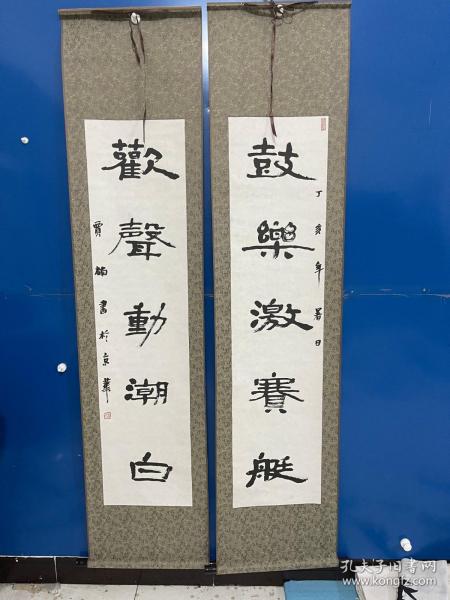 鼓樂激賽艇
丁亥年暑日
歡聲動潮白
賈 書於京華
孔夫子旧书网
www.kongfz.com